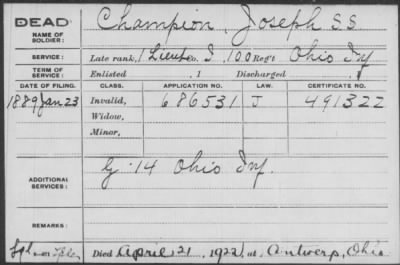 DEAD
NAME OF SOLDIER: Champion, Joseph S S
SERVICE: Late rank, 1 Lieut Co. I, 100 Reg't Ohio Inf
TERM OF SERVICE: Enlisted , 1 Discharged , 1
DATE OF FILING. CLASS. APPLICATION NO. LAW. CERTIFICATE NO.
1889 Jan 23 Invalid, 686531 J 491322
Widow,
Minor,
ADDITIONAL SERVICES: G. 14 Ohio Inf.
REMARKS:
Died April 21, 1922, at Antwerp, Ohio